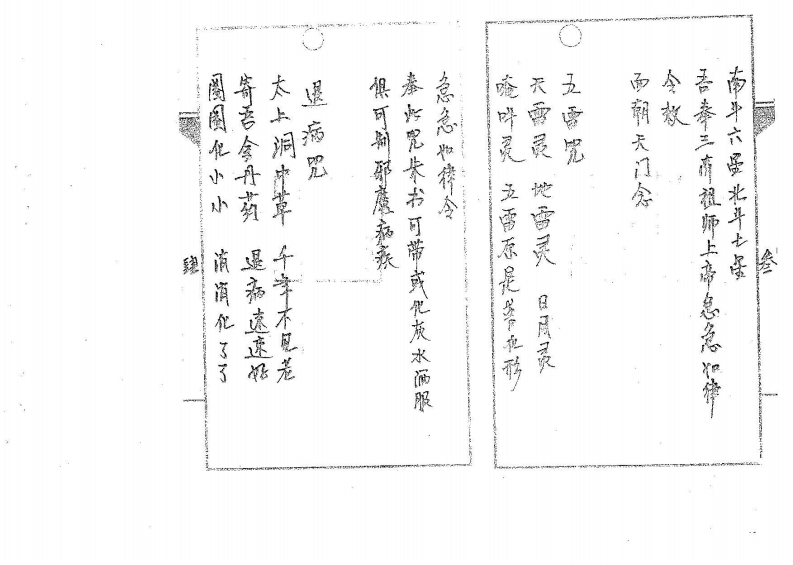 南斗六星北斗七星
吾奉三清祖师上帝急急如律
令敕
面朝天门念
五雷咒
天雷灵 地雷灵 日月灵
唵吽灵 五雷原是 形
叁
急急如律令
奉此咒朱书可带或化灰水洒服
俱可制邪魔病疾
退病咒
太上洞中草 千年不见老
寄吾金丹药 退病速速好
圈圈化小小 消消化了了
肆